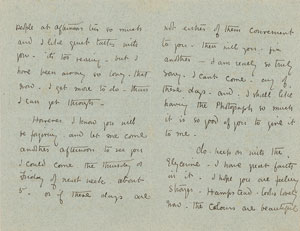 people at afternoon tea so much
and I like quiet talks with
you - it's too teasing - but I
have been away so long - that
now - I get more to do - than
I can get through -
However I know you will
be forgiving and let me come
another afternoon to see you
I could come the Thursday or
Friday of next week about
5 - or if these days are
not either of them convenient
to you - then will you - fix
another - I am really so truly
sorry I can't come - any of
those days - and I shall like
having the Photograph so much
it is so good of you to give it
to me -
Do keep on with the
Glycerine - I have great faith
in it - I hope you are feeling
stronger - Hampstead looks lovely
now - the colours are beautiful